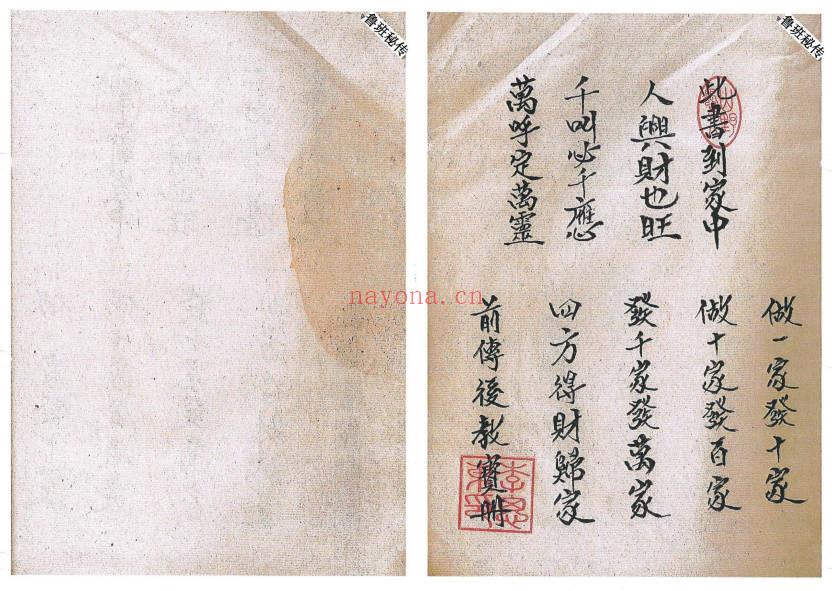 鲁班秘传
鲁班秘传
此書到家中
人興財也旺
千叫必千應
萬呼定萬靈
做一家發十家
做十家發百家
發千家發萬家
四方得財歸家
前傳後教寶冊
nayona.cn